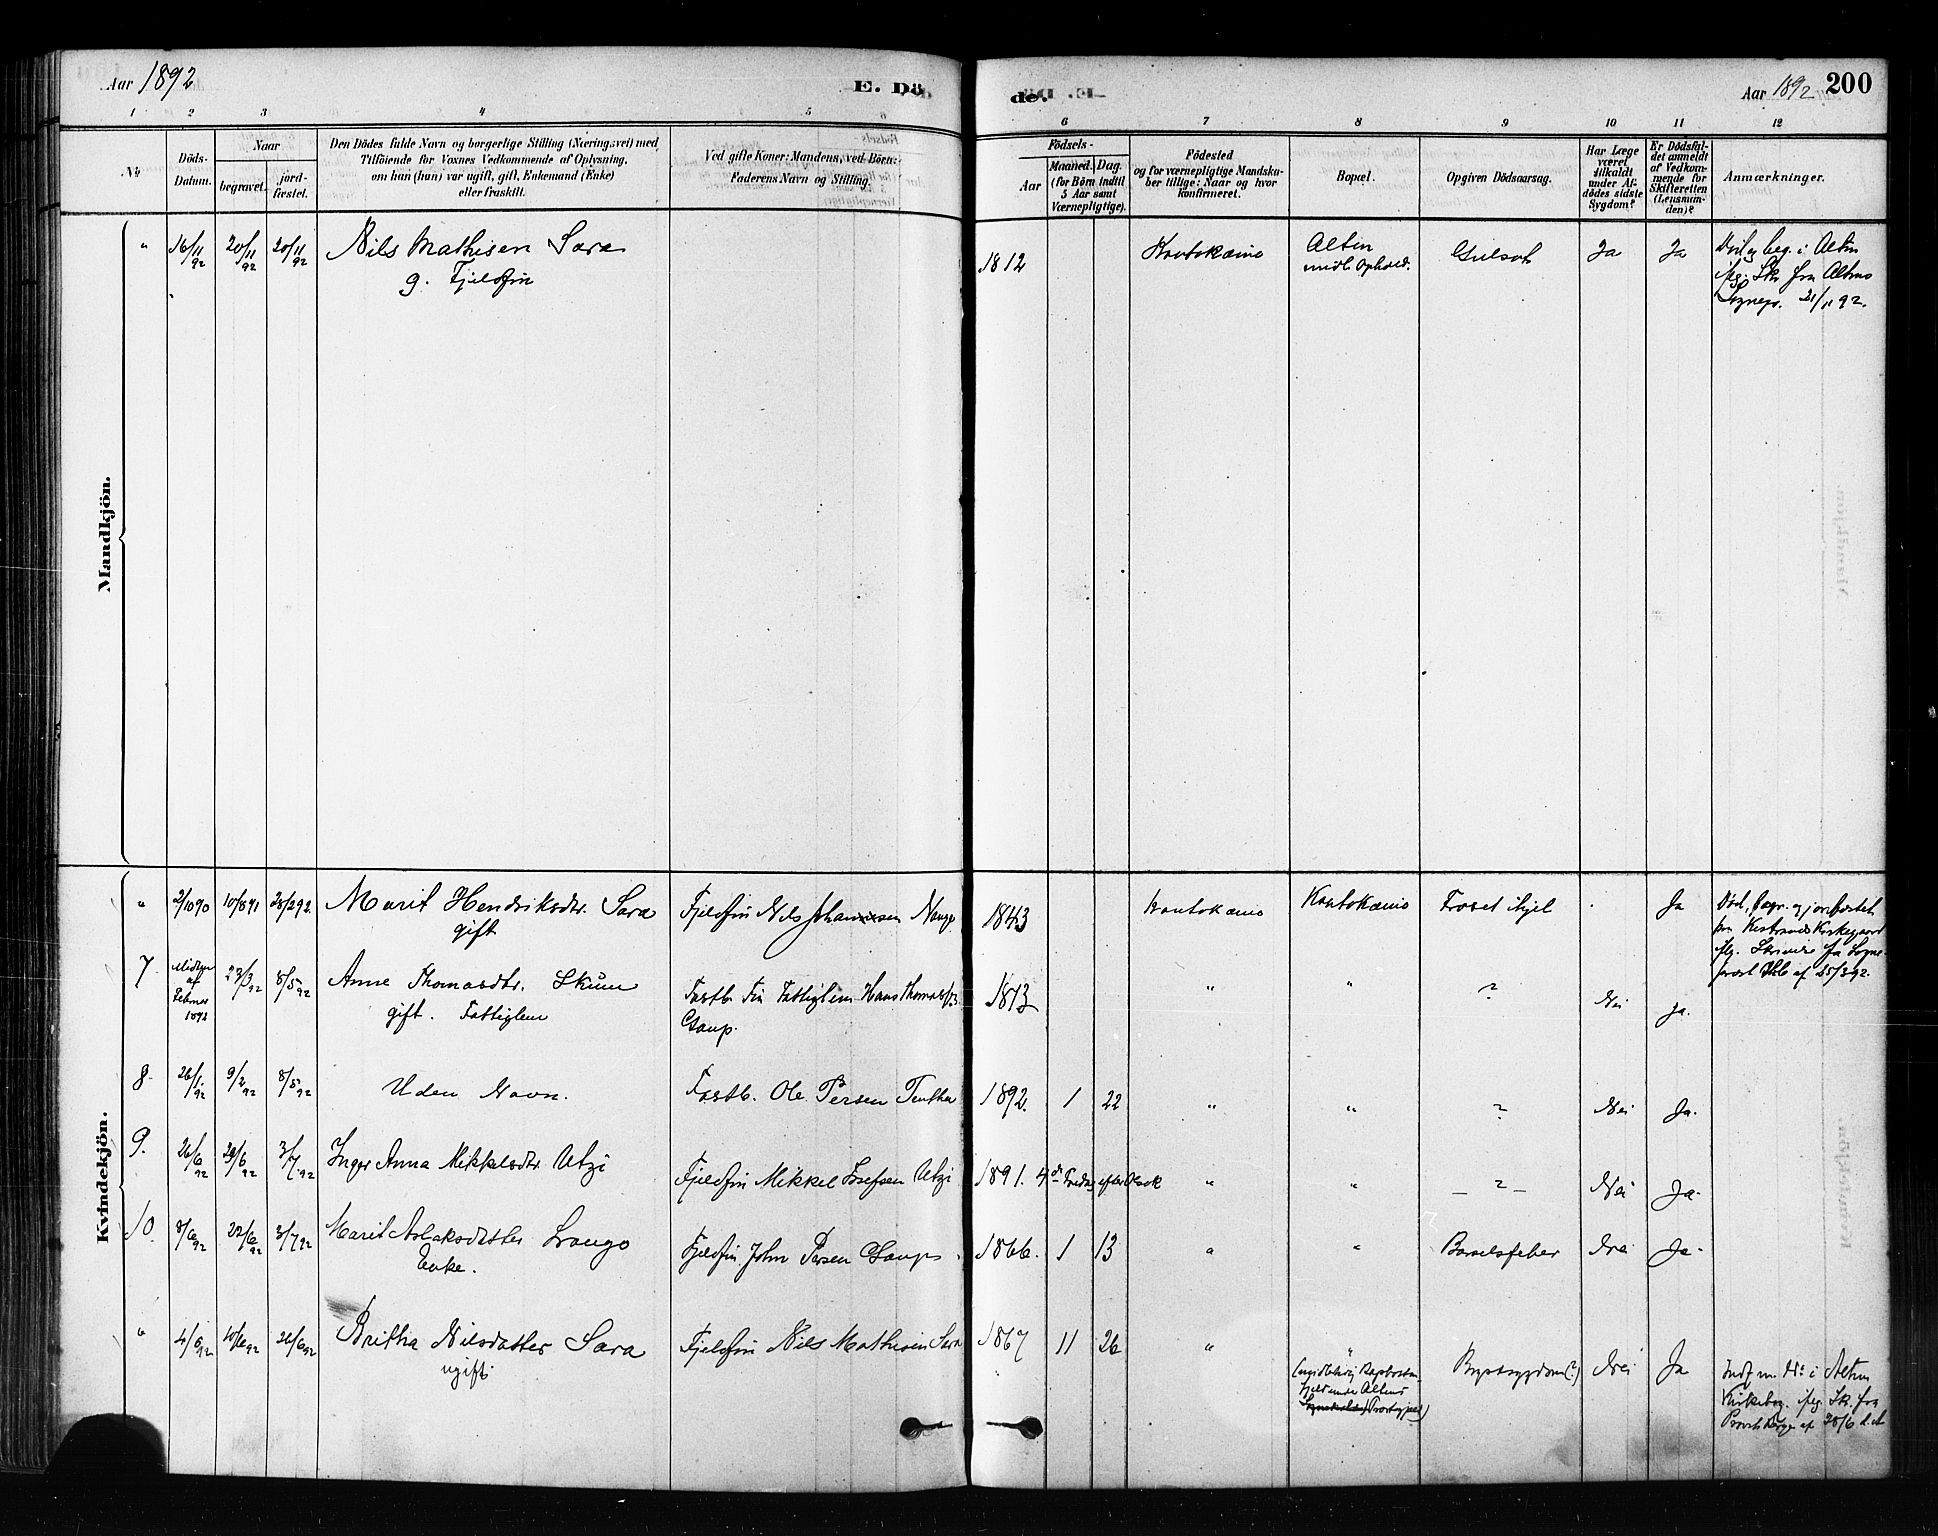 Aar 1892
E. Dö
de.
Aar 1892
200
1 2 3 4 5 6 7 8 9 10 11 12
No
Döds-
Datum.
Naar
begravet.
jord-
fæstet.
Den Dödes fulde Navn og borgerlige Stilling (Næringsvei) med
Tilföiende for Voxnes Vedkommende af Oplysning,
om han (hun) var ugift, gift, Enkemand (Enke)
eller fraskilt.
Ved gifte Koner: Mandens, ved Börn:
Faderens Navn og Stilling.
Födsels-
Aar
Maaned.
Dag.
(for Börn indtil
5 Aar samt
Værnepligtige).
Födested
og for værnepligtige Mandska-
ber tillige: Naar og hvor
konfirmeret.
Bopæl.
Opgiven Dödsaarsag.
Har Læge
været
tilkaldt
under Af-
dödes sidste
Sygdom?
Er Dödsfal-
det anmeldt
af Vedkom-
mende for
Skifteretten
(Lensman-
den)?
Anmærkninger.
Mandkjön.
" 16/11 92 20/11 92 20/11 92 Nils Mathisen Sara 1812 Koutokæino Alten Gulsot Ja Ja Död og beg. i Alten
g. Fjeldfin midl. Ophold. flg. Skr. fra Altens
Sognepr. 21/11 92.
Kvindekjön.
" 2/10 90 10/8 91 28/2 92. Marit Hendriksdtr. Sara Fjeldfin Nils Johannesen Nango 1843 Koutokæino Koutokæino Frosset ihjel Ja Död, begr. og jordfæstet
gift fra Kistrands Kirkegaard
7. Midten af Februar 1892 23/3 92 8/5 92 Anne Thomasdtr. Skum Fastb. Fin Fattiglem Hans Thomas 1813 " " ? Nei Ja.
gift. Fattiglem Gaup.
8. 26/1 92 9/2 92 8/5 92 Uden Navn. Fastb. Ole Persen Tentha 1892. 1 22 " " ? Nei Ja.
9. 26/6 92 28/6 92 3/7 92 Inger Anna Mikkelsdtr. Utzi Fjeldfin Mikkel Josefsen Utzi 1891. 4de Fredag efter Olsok " " - ? - Nei Ja.
10. 8/6 92 22/6 92 3/7 92 Marit Aslaksdatter Logo Fjeldfin John Persen Gaup 1866. 1 13 " " Barselsfeber Nei Ja.
Enke.
" 4/6 92 10/6 92 26/6 92 Britha Nilsdatter Sara Fjeldfin Nils Mathisen Sara 1867 11 26 " " Brystsygdom (?) Nei Ja
ugift.
Fjeld under Altens
Indf. u. No i Alten
Kirkebog. flg. Skr. fra